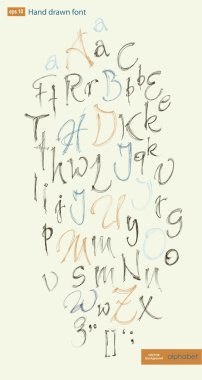 eps 10 Hand drawn font
a
a A a C
F f R r B b b E
T t H D K k e
T h w L J q k
l i j J U V r g
i P U y O o
M m m
v S m N n
W w Z X
3 " [ ] " ;
vector background alphabet